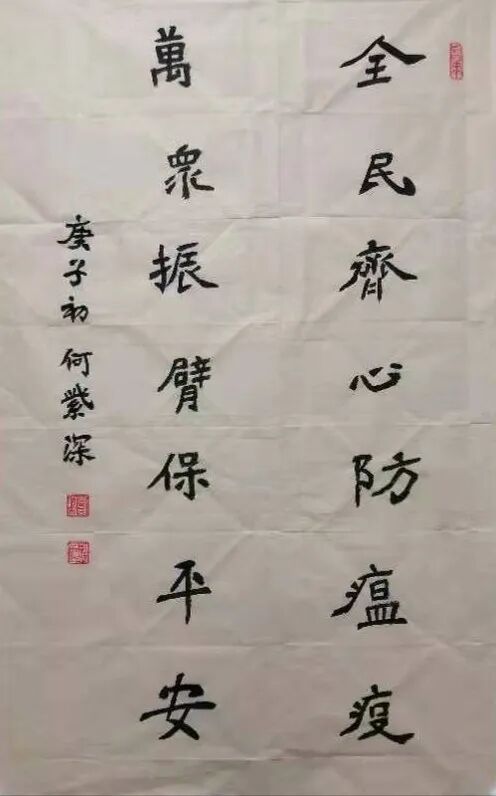 全民齊心防瘟疫
萬眾振臂保平安
庚子初何紫深